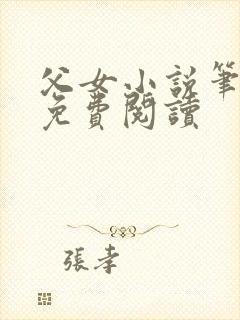 父女小说筆
免費閱讀
張孝